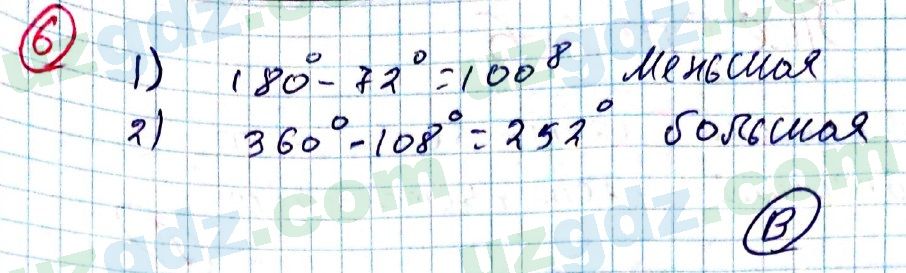 6
1) 180° - 72° = 100⁸ Меньшая
2) 360° - 108° = 252° большая
B
uzgdz.com